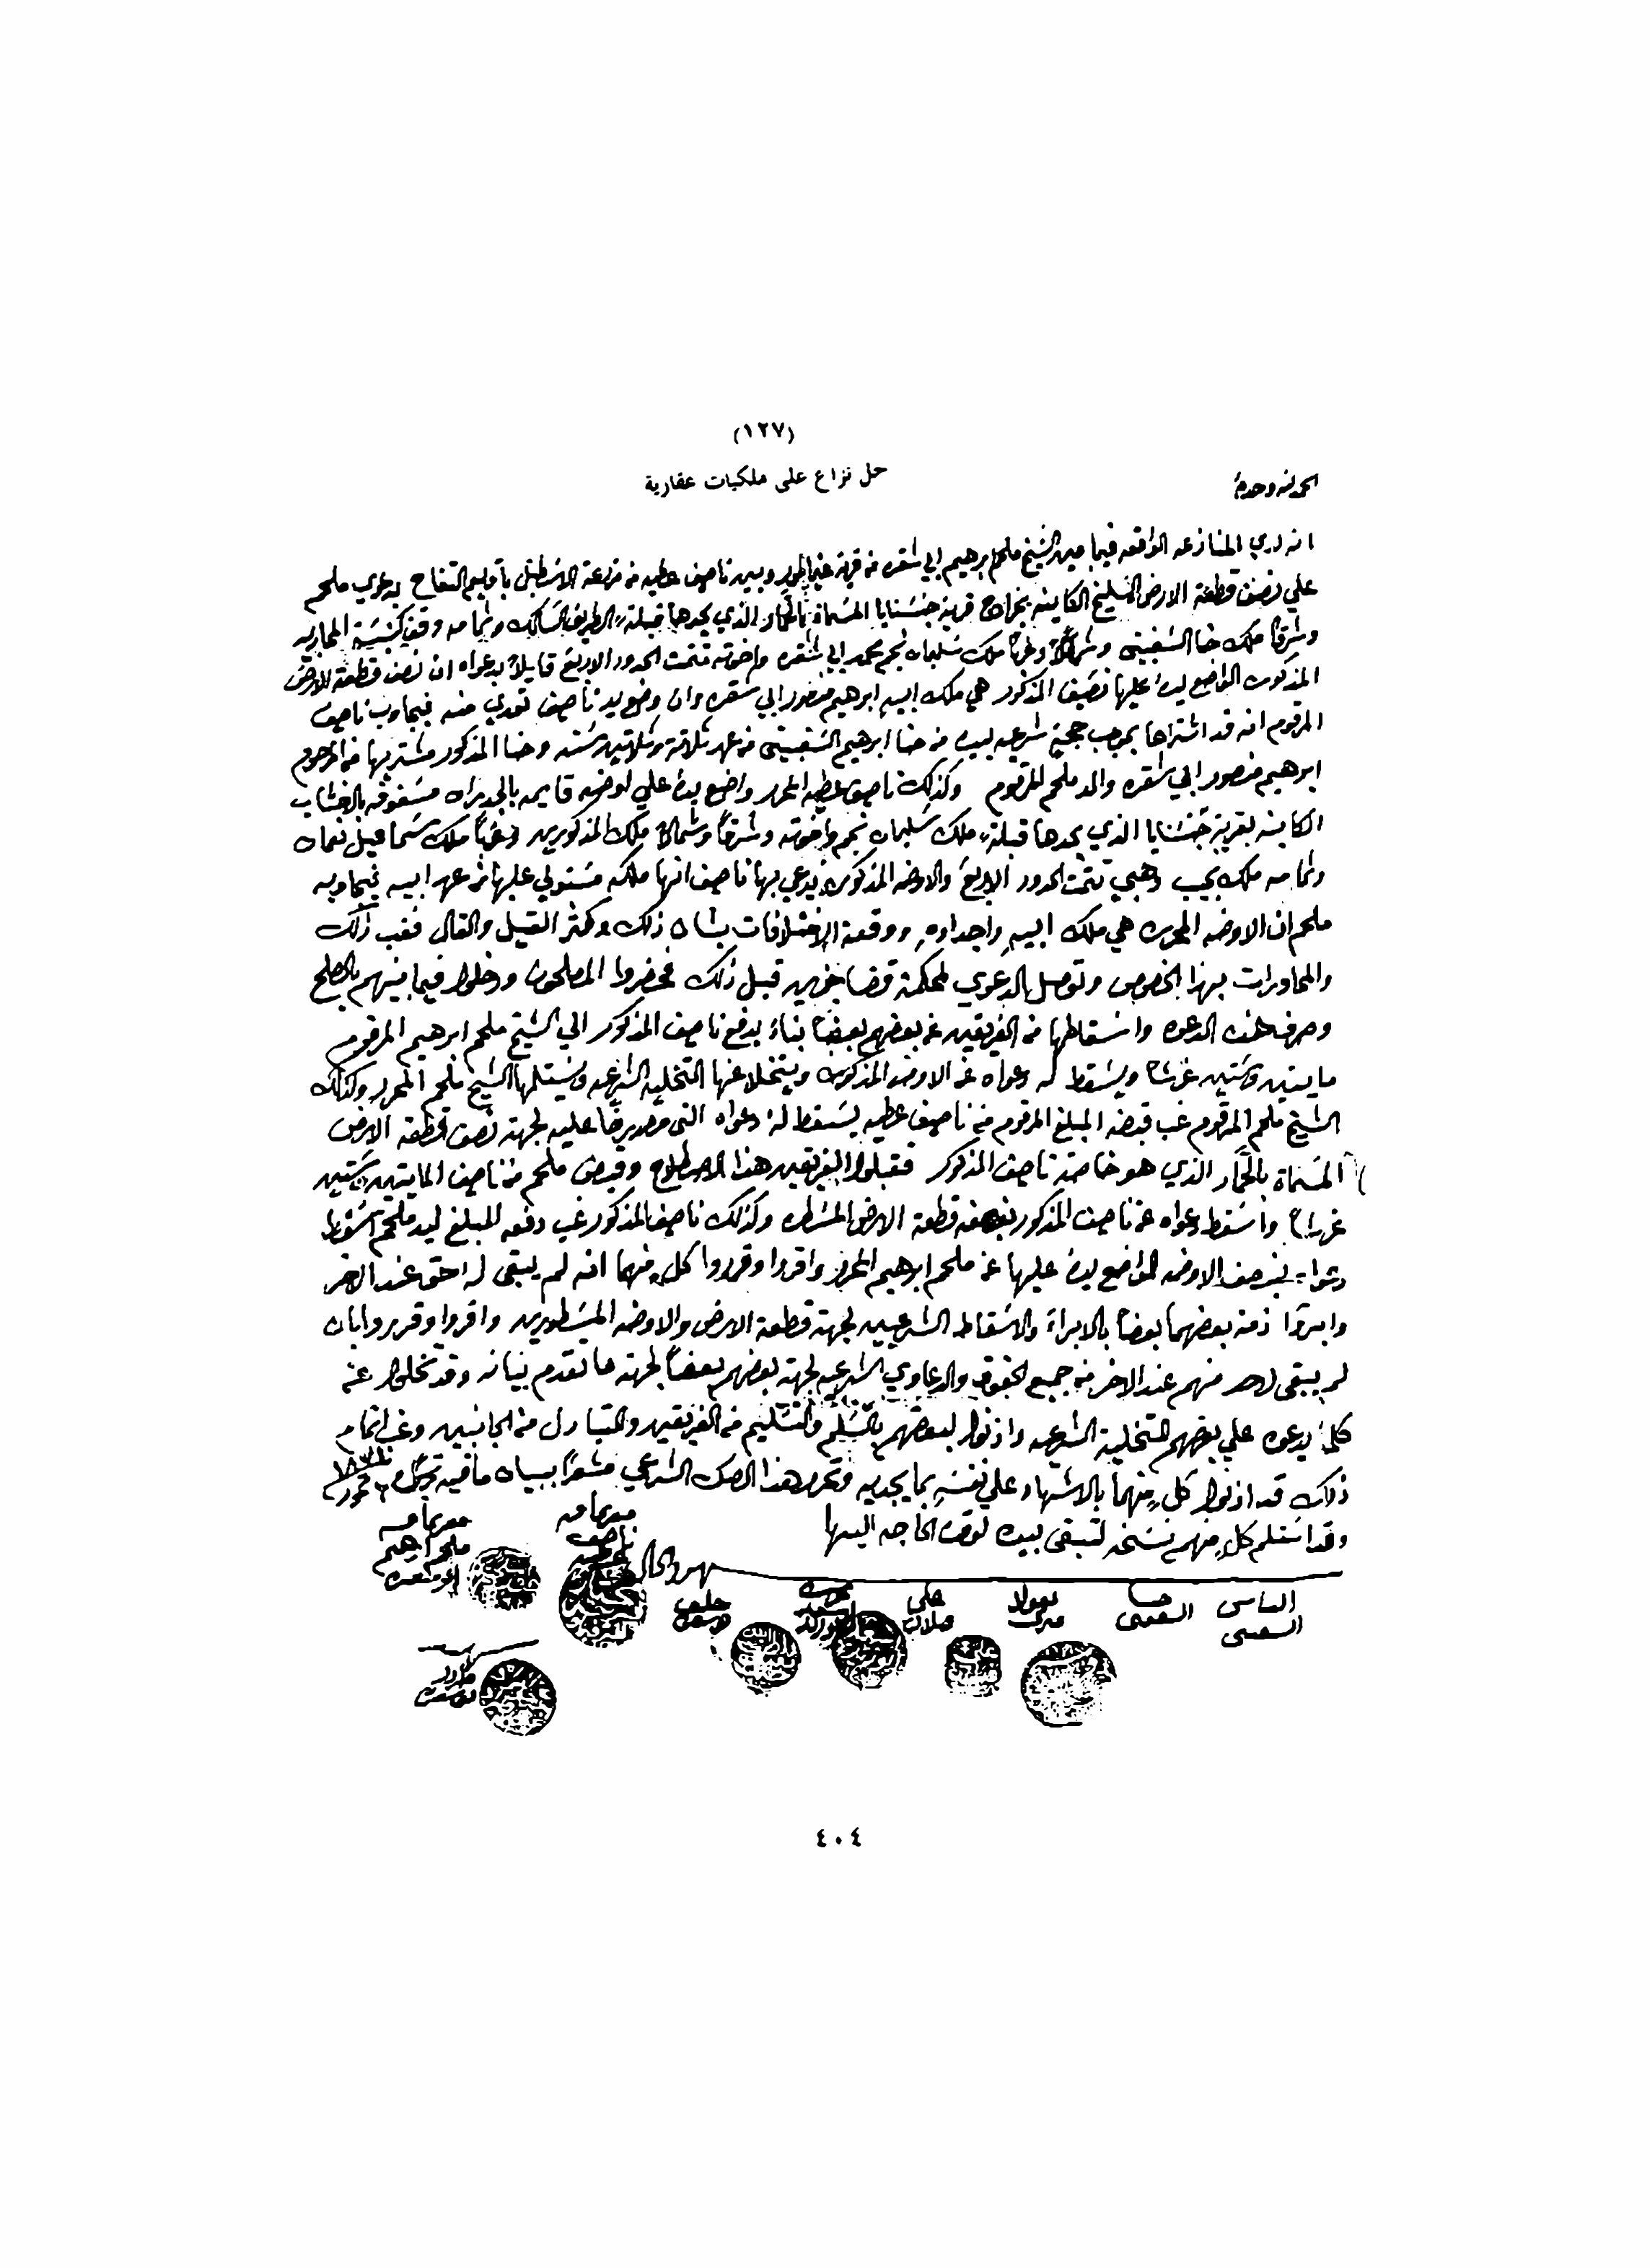 (١٢٧)
حل نزاع على ملكيات عقارية
الحمد لله وحده
انه لدي المنازعه الواقعه فيما بين الشيخ ملحم ابرهيم ابي شقره من قرية وبين ناصيف عطيه من مزرعة الاسطبل باقليم التفاح بدعوي ملحم
علي نصف قطعة الارض السليخ الكاينه بخراج قرية جنسنايا المسماة بالحمار الذي يحدها قبلة الطريق السالك وشامه وقف كنيسة المحاربيه
وشرقاً ملك حنا الشفيتي وشمالاً وغرباً ملك سليمان نجم محمد ابي شقره واخوته تتمت الحدود الاربع قايلاً بدعواه ان نصف قطعة الارض
المذكوره الواضع يده عليها نصيف المذكور هي ملك ابيه ابرهيم منصور ابي شقره وان وضع يد ناصيف تعدي منه فيجاوب ناصيف
المرقوم انه قد اشتراها بموجب حجة شرعيه بيده من حنا ابرهيم الشفيتي من عهد ثلاثة وثلاثين سنه وحنا المذكور مشتريها من المرحوم
ابرهيم منصور ابي شقره والد ملحم المرقوم وكذلك ناصيف عطيه المحرر واضع يده علي اوضه قايمه بالجدران مسقوفه بالاخشاب
الكاينه بقرية جنسنايا الذي يحدها قبلة ملك سليمان نجم واخوته وشرقاً وشمالاً ملك المذكورين وغرباً ملك سماعيل نعمان
وشامه ملك نجيب وهبي تتمت الحدود الاربع والاوضه المذكوره يدعي بها ناصيف انها ملكه مستولي عليها من عهد ابيه فيجاوبه
ملحم ان الاوضه المحرره هي ملك ابيه واجداده ووقعة الاختلافات بشان ذلك وكثر القيل والقال فغب ذلك
والمحاورات بهذا الخصوص وتوصل الدعوي لمحكمة قضا جزين قبل ذلك فحضروا المصلحون ودخلوا فيما بينهم بالصلح
وصرف هذه الدعوه واسقاطها من الفريقين عن بعضهم بعضاً بناء بدفع ناصيف المذكور الي الشيخ ملحم ابرهيم المرقوم
مايتين وستين غرشاً ويسقط له دعواه عن الاوضه المذكوره ويتخلا عنها التخلية الشرعيه ويستلمها الشيخ ملحم المحرر وكذلك
الشيخ ملحم المرقوم غب قبضه المبلغ المرقوم من ناصيف عطيه يسقط له دعواه التي عليه لجهة نصف قطعة الارض
المسماة بالحمار الذي هو خاصة ناصيف المذكور فقبلوا الفريقين هذا الاصطلاح وقبض ملحم من ناصيف المايتين وستين
غرشاً واسقط دعواه عن ناصيف المذكور بنصف قطعة الارض المسطره وكذلك ناصيف المذكور غب دفعه المبلغ ليد ملحم اسقط
دعواه بنصف الاوضه الواضع يده عليها عن ملحم ابرهيم المحرر واقروا وقرروا كل منهما انه لم يبقى له حق عند الاخر
وابرآ ذمة بعضهما بعضاً بالابراء والاسقاط الشرعيين لجهة قطعة الارض والاوضه المسطورين واقروا وقرروا بان
لم يبقى لاحد منهم عند الاخر من جميع الحقوق والدعاوي الشرعيه لجهة بعضهم بعضاً لجهة ما تقدم بيانه وقد تخلوا عن
كلما يدعوه علي بعضهم التخلية الشرعيه واذنوا لبعضهم بالتسلم والتسليم من الفريقين والتبادل من الجانبين وغب اتمام
ذلك قد اذنوا كل منهما بالاشهاد علي نفسه بما يجديه وتحرر هذا الصك الشرعي مشعراً ببيان ما فيه
وقد استلم كل منهم نسخه لتبقى بيده لوقت الحاجه اليها
شهود الحال
ناصيف
عطيه
ملحم ابرهيم
ابو شقره
الياس
الشفيتي
حنا
الشفيتي
علي
٤٠٤